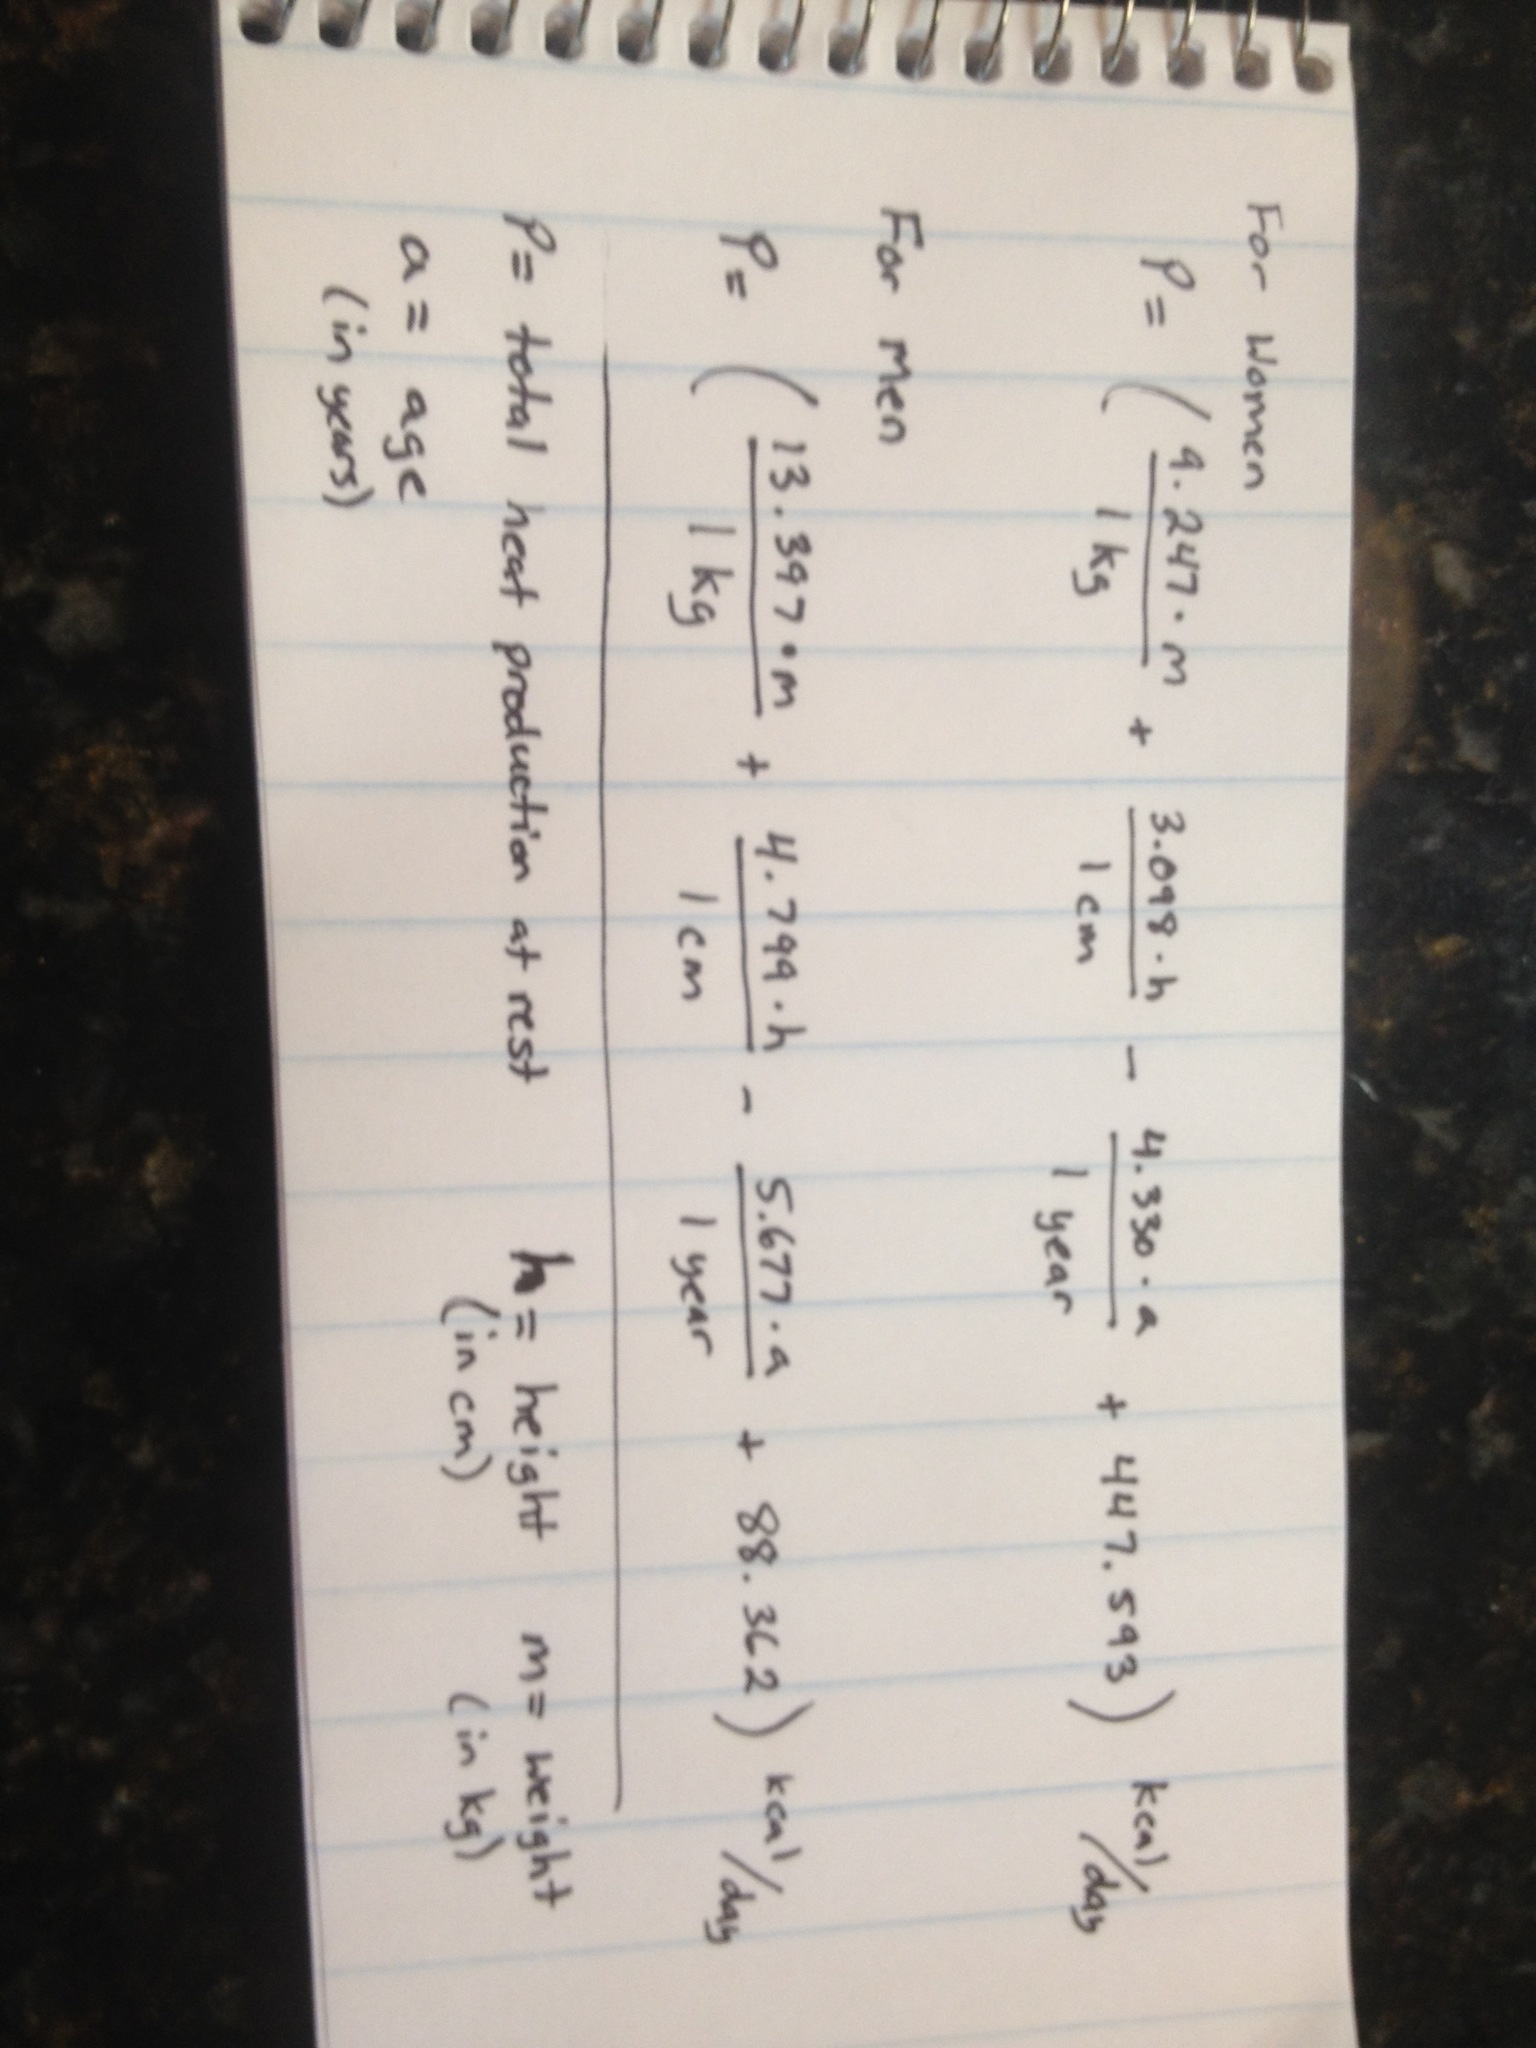 For Women
P = ( 9.247 · m / 1 kg + 3.098 · h / 1 cm - 4.330 · a / 1 year + 447.593 ) kcal/day
For men
P = ( 13.397 · m / 1 kg + 4.799 · h / 1 cm - 5.677 · a / 1 year + 88.362 ) kcal/day
P = total heat production at rest h = height (in cm) m = weight (in kg)
a = age
(in years)